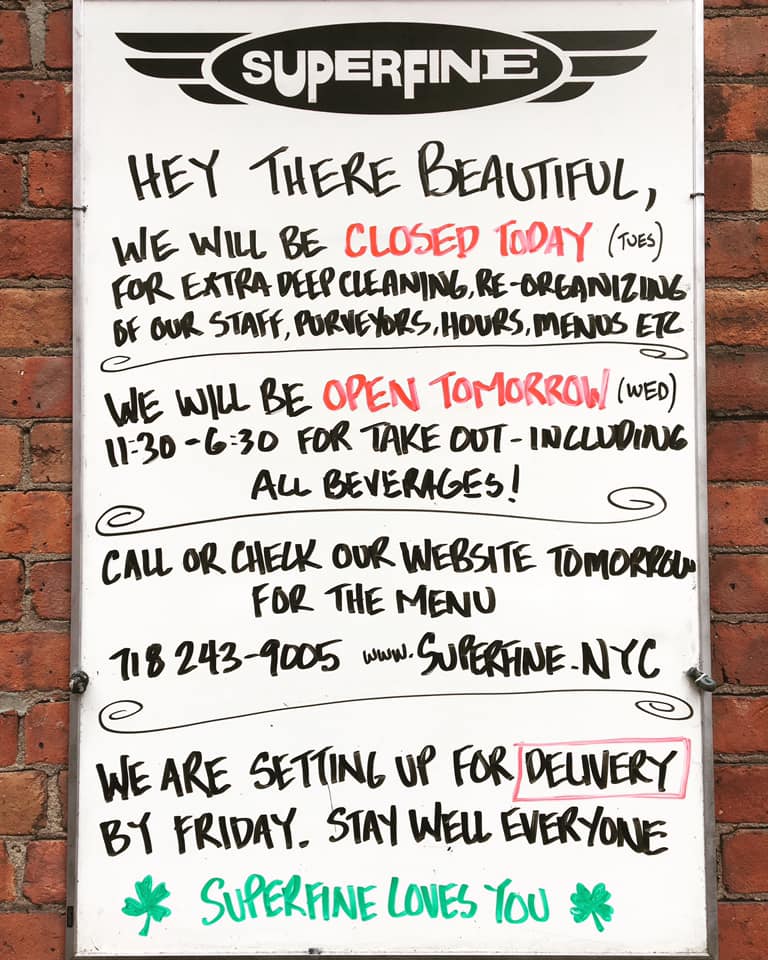 SUPERFINE
HEY THERE BEAUTIFUL,
WE WILL BE CLOSED TODAY (TUES)
FOR EXTRA DEEP CLEANING, RE-ORGANIZING
OF OUR STAFF, PURVEYORS, HOURS, MENUS ETC
WE WILL BE OPEN TOMORROW (WED)
11:30-6:30 FOR TAKE OUT - INCLUDING
ALL BEVERAGES!
CALL OR CHECK OUR WEBSITE TOMORROW
FOR THE MENU
718 243-9005 www.SUPERFINE.NYC
WE ARE SETTING UP FOR DELIVERY
BY FRIDAY. STAY WELL EVERYONE
SUPERFINE LOVES YOU